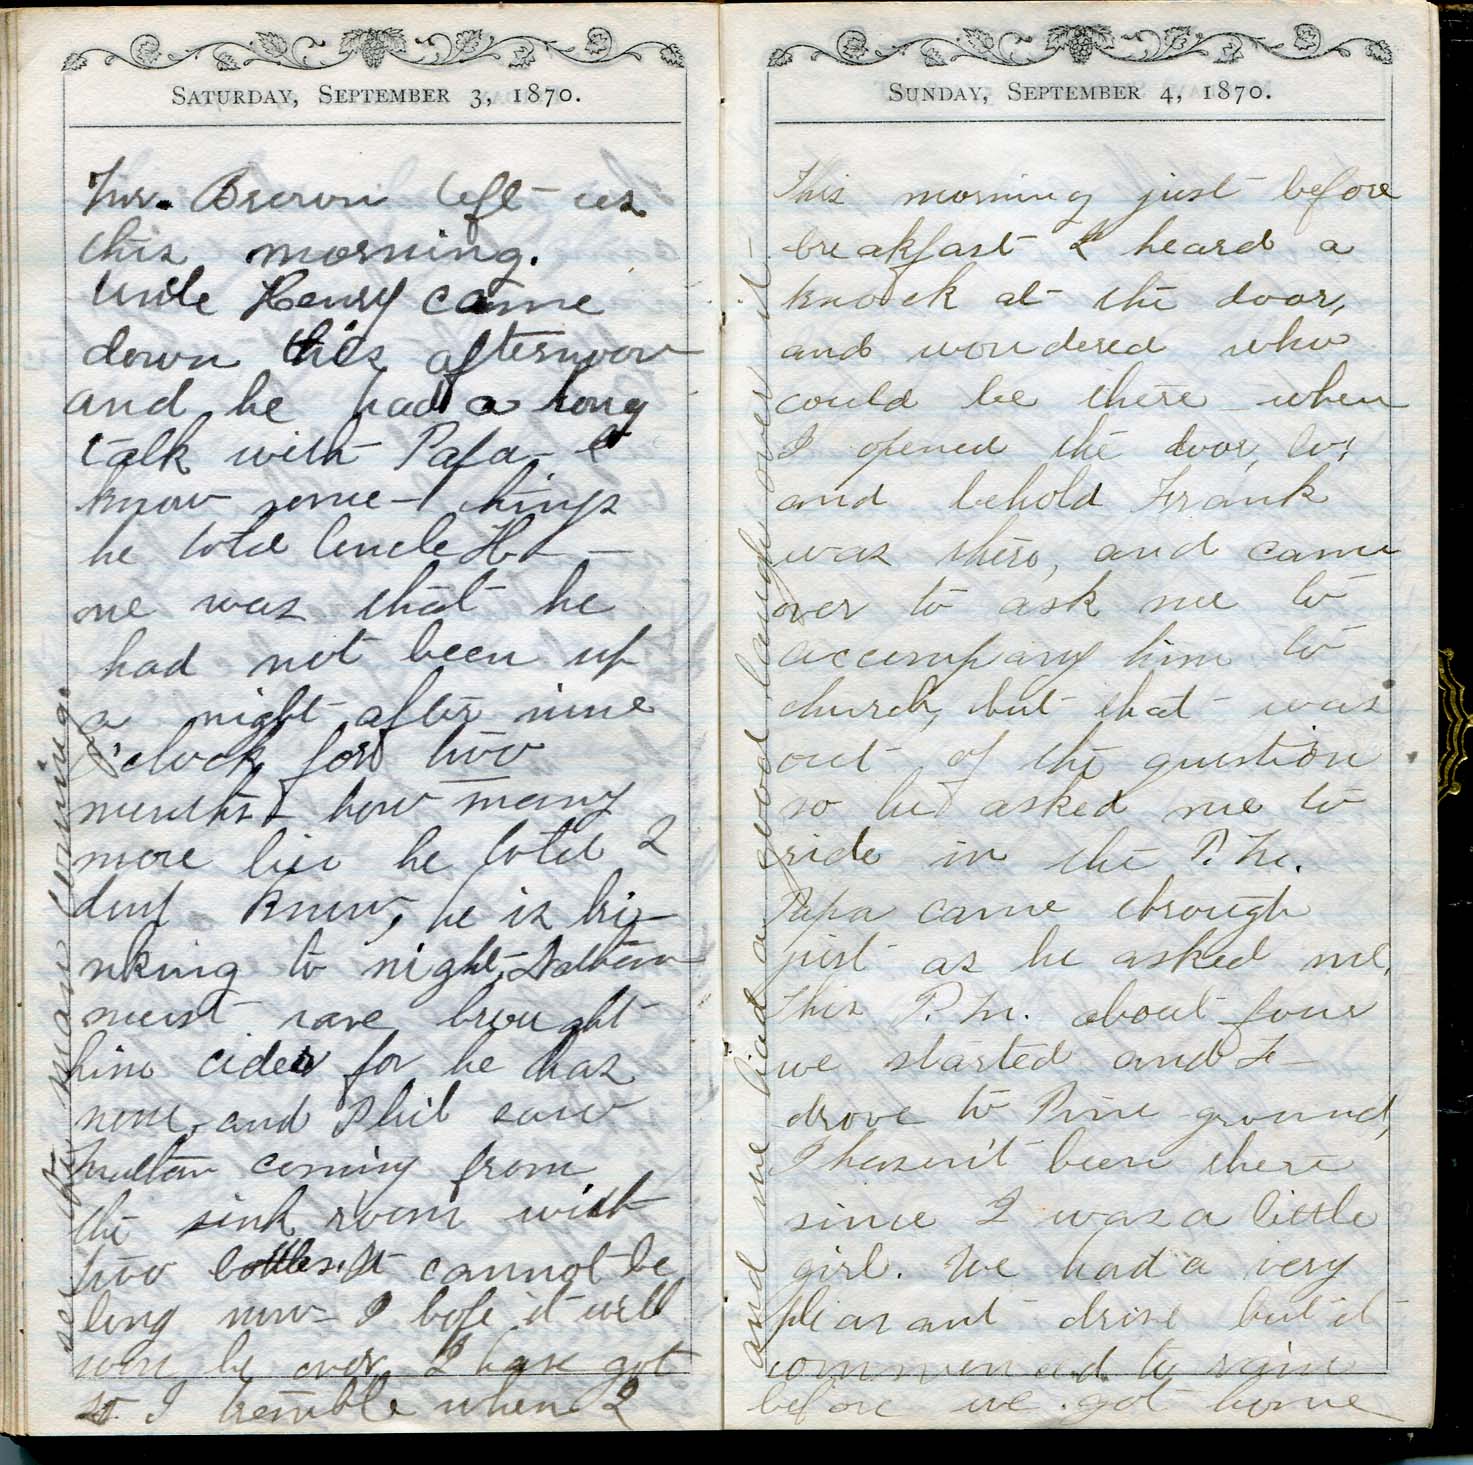 Saturday, September 3, 1870.
Mr. Brown left us
this morning.
Uncle Henry came
down this afternoon
and he had a long
talk with Papa - I
know some things
he told Uncle H -
one was that he
had not been up
a night after nine
o'clock for two
months - how many
more lies he told I
dont know, he is dri-
nking to night,
must have brought
him cider for he has
none, and Phil saw
coming from
the sink room with
two bottles. It cannot be
long now - I hope it will
soon be over. I have got
so I tremble when I
see the man coming.
Sunday, September 4, 1870.
This morning just before
breakfast I heard a
knock at the door,
and wondered who
could be there when
I opened the door, lo!
and behold Frank
was there, and came
over to ask me to
accompany him to
church, but that was
out of the question
so he asked me to
ride in the P.M.
Papa came through
just as he asked me,
This P.M. about four
we started and F -
drove to Pine ground,
I hasen't been there
since I was a little
girl. We had a very
pleasant drive but it
commenced to rain
before we got home
and we had a good laugh over it -